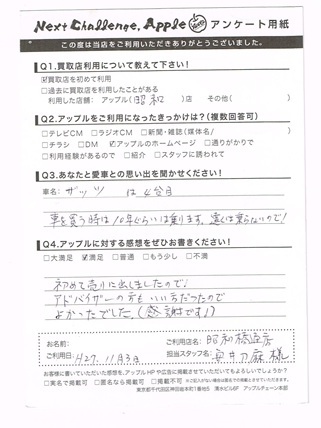 Next Challenge, Apple アンケート用紙
この度は当店をご利用いただきありがとうございました。
Q1.買取店利用について教えて下さい!
☑買取店を初めて利用
□過去に買取店を利用したことがある
利用した店舗: アップル(昭和)店 その他( )
Q2.アップルをご利用になったきっかけは?(複数回答可)
□テレビCM □ラジオCM □新聞・雑誌(媒体名/ )
□チラシ □DM ☑アップルのホームページ □通りがかりで
□利用経験があるので □紹介 □スタッフに誘われて
Q3.あなたと愛車との思い出を聞かせください!
車名: ザッツ は4台目
車を買う時は10年ぐらいは乗ります。遠くは乗らないので!
Q4.アップルに対する感想をぜひお書きください!
□大満足 ☑満足 □普通 □もう少し □不満
初めて売りに出しましたので!
アドバイザーの方もいい方だったので
よかったでした。(感謝です!)
お名前:
ご利用店名: 昭和橋通店
ご利用日: H27. 11月3日
担当スタッフ名: 様
お客様に書いていただいた感想を、アップルHPや広告に掲載させていただいてもよろしいでしょうか?
□実名で掲載可 □匿名なら掲載可 □掲載不可
東京都千代田区神田錦本町1番地5 清水ビル8F アップルチェーン本部